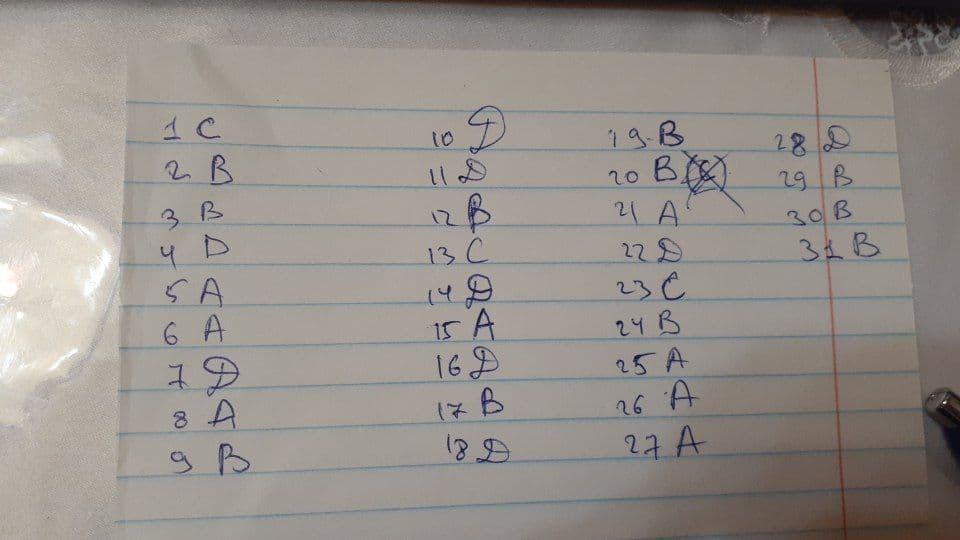 1 C
2 B
3 B
4 D
5 A
6 A
7 D
8 A
9 B
10 D
11 D
12 B
13 C
14 D
15 A
16 D
17 B
18 D
19-B
20 B
21 A
22 D
23 C
24 B
25 A
26 A
27 A
28 D
29 B
30 B
31 B